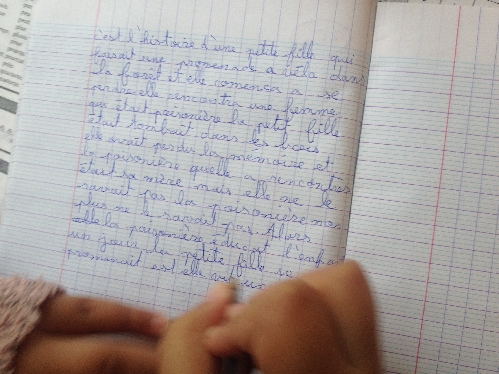 c'est l'histoire d'une petite fille qui
faisait une promenade a vélo dans
la foret et elle comença a se
perdre elle rencontra une femme
qui était prisonière la petit fille
était tombait dans les bras
elle avait perdu la mémoire et
la prisonière quelle a rencontrée
était sa mère mais elle ne le
savait pas la poisonière non
plus ne le savait pas. Alors
la poisonière éducat l'enfant
un jour la petite fille se
prominait est elle